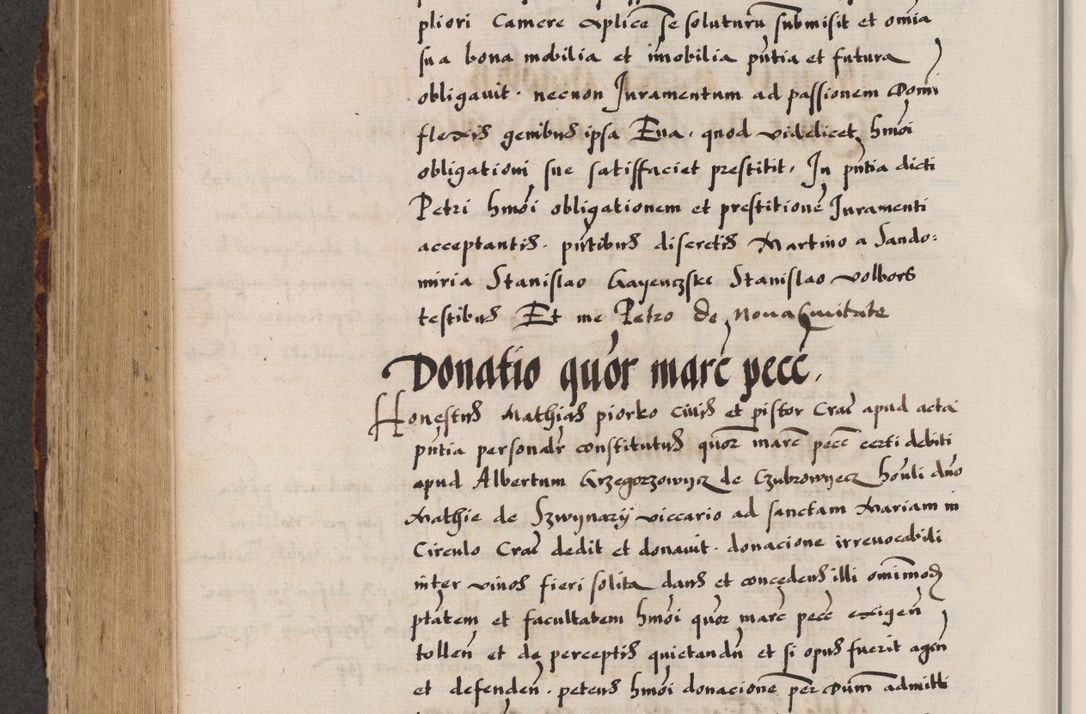 pliori Camere Aplice se soluturu submisit et omia
sua bona mobilia et imobilia pntia et futura
obligauit · necnon Juramentum ad passionem Domi
flexis genibus ipsa Eua · quod videlicet hmoi
obligationi sue satisfaciet prestitit · In pntia dicti
Petri hmoi obligationem et prestitione Juramenti
acceptantis · pntibus discretis Martino a Sando:
miria Stanislao Gayenczski Stanislao volbors
testibus Et me Petro de Noua Ciuitate
Donatio quor marc pecc ·
Honestus Mathias piorko ciuis et pistor Crac apud acta
pntia personalr constitutus quor marc pecc certi debiti
apud Albertum Grzegorzowycz de Czubrowyecz honli dno
Mathie de Szwynary viccario ad sanctam Mariam in
Circulo Crac dedit et donauit · donacione irreuocabili
inter viuos fieri solita dans et concedens illi omimod
ptatem et facultatem hmoi quor marc pecc exigen
tollen et de perceptis quictandn et si opus fuerit agen
et defenden · petens hmoi donacione per Dum admitti